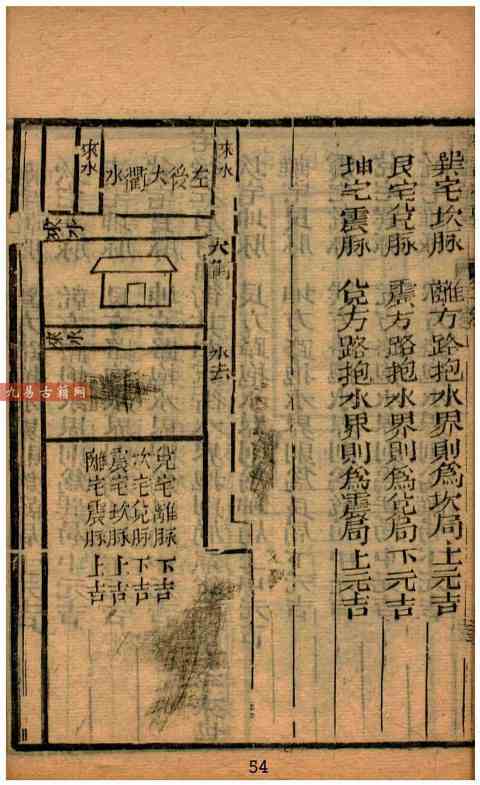 巽宅坎脉 離方路抱水界則為坎局上元吉
艮宅兌脉 震方路抱水界則為兌局下元吉
坤宅震脉 兌方路抱水界則為震局上元吉
來水
左後大衢水
來水
大衢
水去
來水
兌宅離脉 下吉
坎宅兌脉 下吉
震宅坎脉 上吉
離宅震脉 上吉
九易古籍网
54